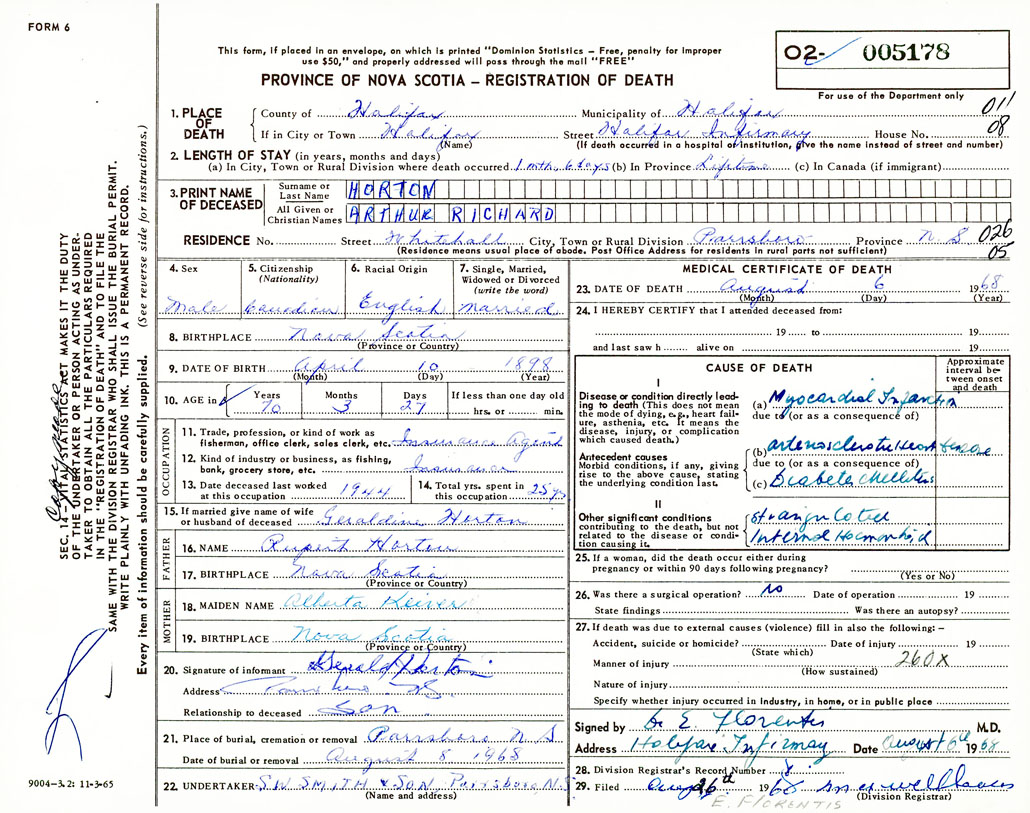 FORM 6
This form, if placed in an envelope, on which is printed "Dominion Statistics – Free, penalty for improper
use $50," and properly addressed will pass through the mail "FREE"
PROVINCE OF NOVA SCOTIA – REGISTRATION OF DEATH
02- 005178
For use of the Department only
011
08
1. PLACE OF DEATH
County of Halifax Municipality of Halifax
If in City or Town Halifax Street Halifax Infirmary House No.
(Name) (If death occurred in a hospital or institution, give the name instead of street and number)
2. LENGTH OF STAY (in years, months and days)
(a) In City, Town or Rural Division where death occurred 1 mth, 6 days (b) In Province Lifetime (c) In Canada (if immigrant)
3. PRINT NAME OF DECEASED
Surname or Last Name HORTON
All Given or Christian Names ARTHUR RICHARD
RESIDENCE No. Street Whitehall City, Town or Rural Division Parrsboro Province N S
(Residence means usual place of abode. Post Office Address for residents in rural parts not sufficient)
026
05
4. Sex
Male
5. Citizenship (Nationality)
Canadian
6. Racial Origin
English
7. Single, Married, Widowed or Divorced (write the word)
Married
8. BIRTHPLACE Nova Scotia
(Province or Country)
9. DATE OF BIRTH April 10 1898
(Month) (Day) (Year)
10. AGE in Years Months Days If less than one day old
70 3 27 hrs. or min.
OCCUPATION
11. Trade, profession, or kind of work as
fisherman, office clerk, sales clerk, etc. Insurance Agent
12. Kind of industry or business, as fishing,
bank, grocery store, etc. Insurance
13. Date deceased last worked
at this occupation 1944
14. Total yrs. spent in
this occupation 25 yrs
15. If married give name of wife
or husband of deceased Geraldine Horton
FATHER
16. NAME Rupert Horton
17. BIRTHPLACE Nova Scotia
(Province or Country)
MOTHER
18. MAIDEN NAME Alberta
19. BIRTHPLACE Nova Scotia
(Province or Country)
20. Signature of informant Gerald Horton
Address
Relationship to deceased Son
21. Place of burial, cremation or removal Parrsboro N S
Date of burial or removal August 8 1968
22. UNDERTAKER S.W SMITH & SON, Parrsboro, N.S
(Name and address)
MEDICAL CERTIFICATE OF DEATH
23. DATE OF DEATH August 6 1968
(Month) (Day) (Year)
24. I HEREBY CERTIFY that I attended deceased from:
19 to 19
and last saw h alive on 19
CAUSE OF DEATH
Approximate interval between onset and death
I
Disease or condition directly leading
to death (This does not mean
the mode of dying, e.g., heart failure,
asthenia, etc. It means the
disease, injury, or complication
which caused death.)
(a) Myocardial Infarction
due to (or as a consequence of)
Antecedent causes
Morbid conditions, if any, giving
rise to the above cause, stating
the underlying condition last.
(b) arteriosclerotic Heart Disease
due to (or as a consequence of)
(c) Diabetes Mellitus
II
Other significant conditions
contributing to the death, but not
related to the disease or condition
causing it.
Internal Haemorrhoid
25. If a woman, did the death occur either during
pregnancy or within 90 days following pregnancy?
(Yes or No)
26. Was there a surgical operation? No Date of operation 19
State findings Was there an autopsy?
27. If death was due to external causes (violence) fill in also the following: –
Accident, suicide or homicide? Date of injury 19
(State which)
Manner of injury 260X
(How sustained)
Nature of injury
Specify whether injury occurred in industry, in home, or in public place
Signed by Dr E. Florentis M.D.
Address Halifax Infirmay Date August 6th 1968
28. Division Registrar's Record Number
29. Filed Aug 26th 1968
(Division Registrar)
E. FLORENTIS
SEC. 14–VITAL STATISTICS ACT MAKES IT THE DUTY
OF THE UNDERTAKER OR PERSON ACTING AS UNDER-
TAKER TO OBTAIN ALL THE PARTICULARS REQUIRED
IN THE "REGISTRATION OF DEATH" AND TO FILE THE
SAME WITH THE DIVISION REGISTRAR WHO SHALL ISSUE THE BURIAL PERMIT.
WRITE PLAINLY WITH UNFADING INK. THIS IS A PERMANENT RECORD.
Every item of information should be carefully supplied. (See reverse side for instructions.)
9004–3.2: 11-3-65